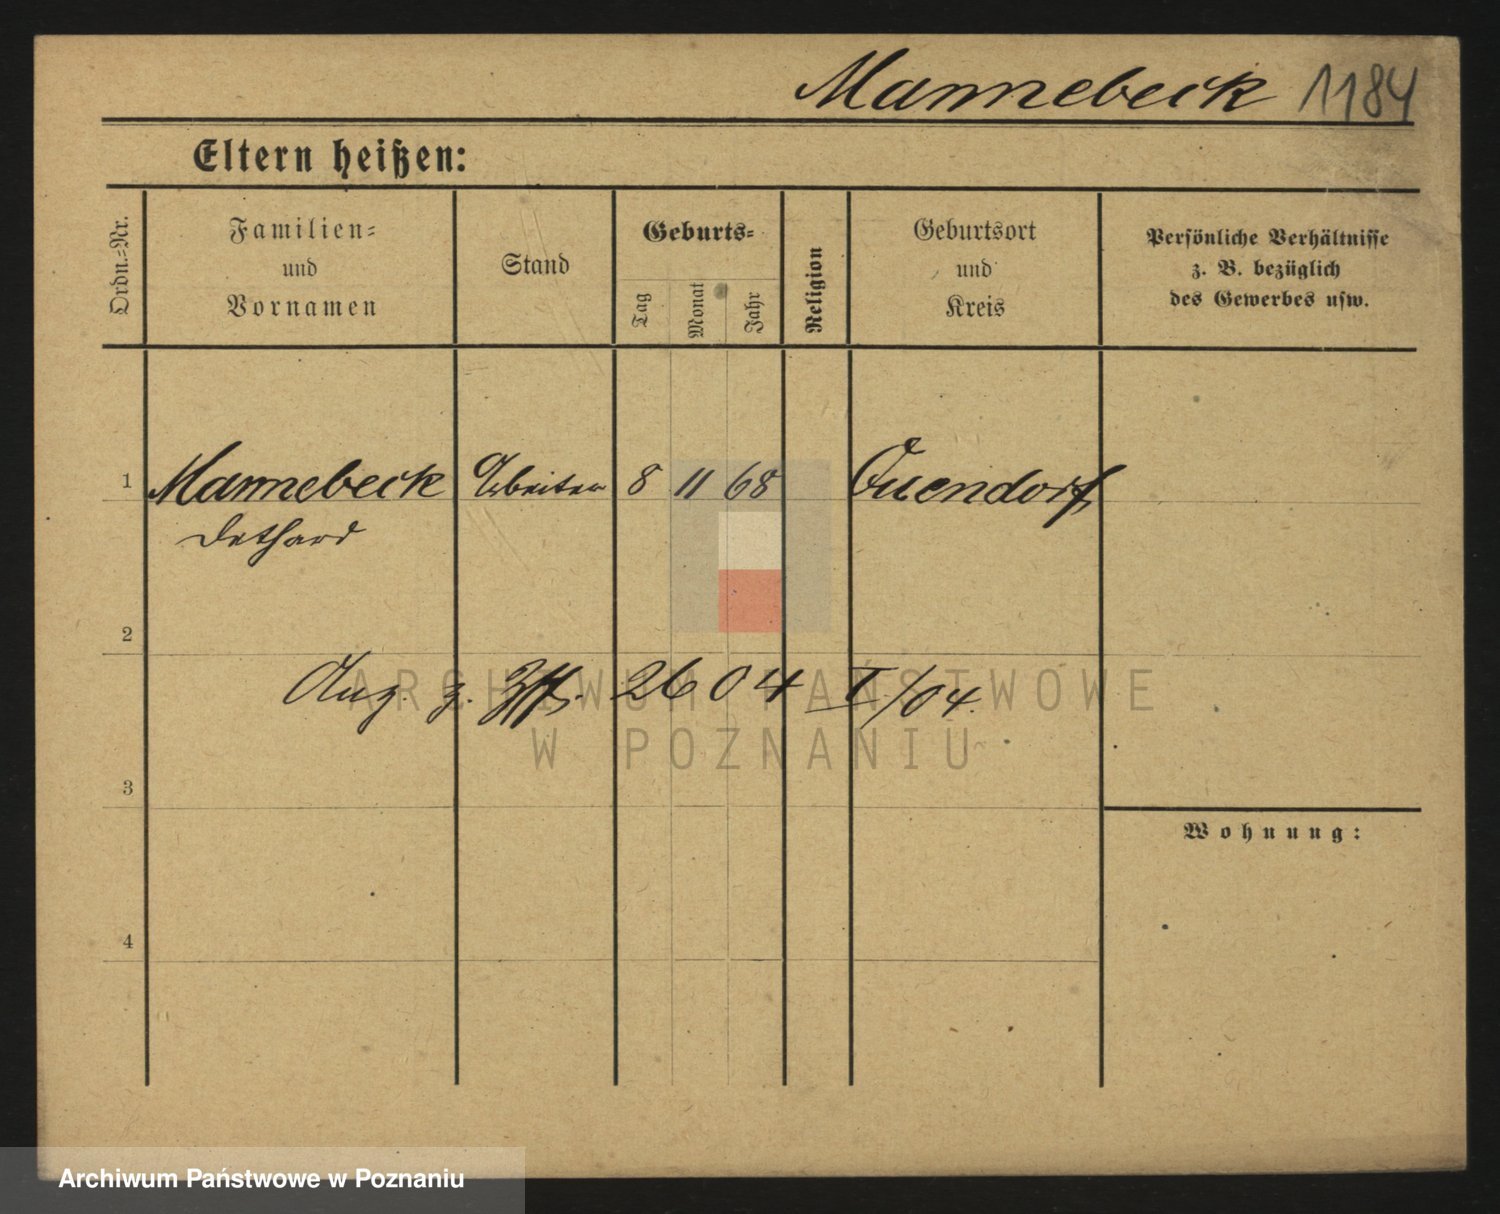 Mannebeck 1184
Eltern heißen:
Ordn.-Nr.
Familien-
und
Vornamen
Stand
Geburts-
Tag
Monat
Jahr
Religion
Geburtsort
und
Kreis
Persönliche Verhältnisse
z. B. bezüglich
des Gewerbes usw.
1 Mannebeck Arbeiter 8 11 68 Quendorf
Dethard
2
z. 26 04 I/04.
ARCHIWUM PAŃSTWOWE
W POZNANIU
3
Wohnung:
4
Archiwum Państwowe w Poznaniu